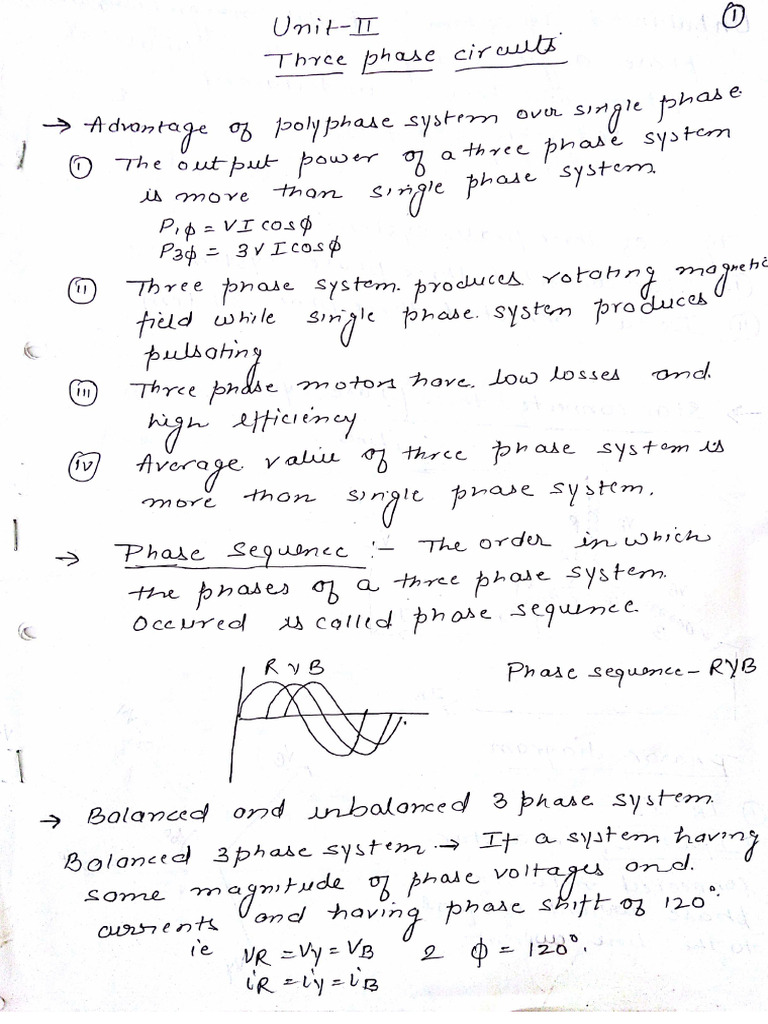 ①
Unit-II
Three phase circuits
→ Advantage of polyphase system over single phase.
(i) The output power of a three phase system
is more than single phase system.
P1φ = VI cosφ
P3φ = 3VI cosφ
(ii) Three phase system. produces rotating magnetic
field while single phase system produces
pulsating
(iii) Three phase motors have low losses and
high efficiency
(iv) Average value of three phase system is
more than single phase system.
→ Phase sequence :- The order in which
the phases of a three phase system
occured is called phase sequence.
R Y B
Phase sequence - RYB
→ Balanced and unbalanced 3 phase system.
Balanced 3phase system → It a system having
same magnitude of phase voltages and
currents and having phase shift of 120°.
ie VR = VY = VB & φ = 120°.
iR = iY = iB